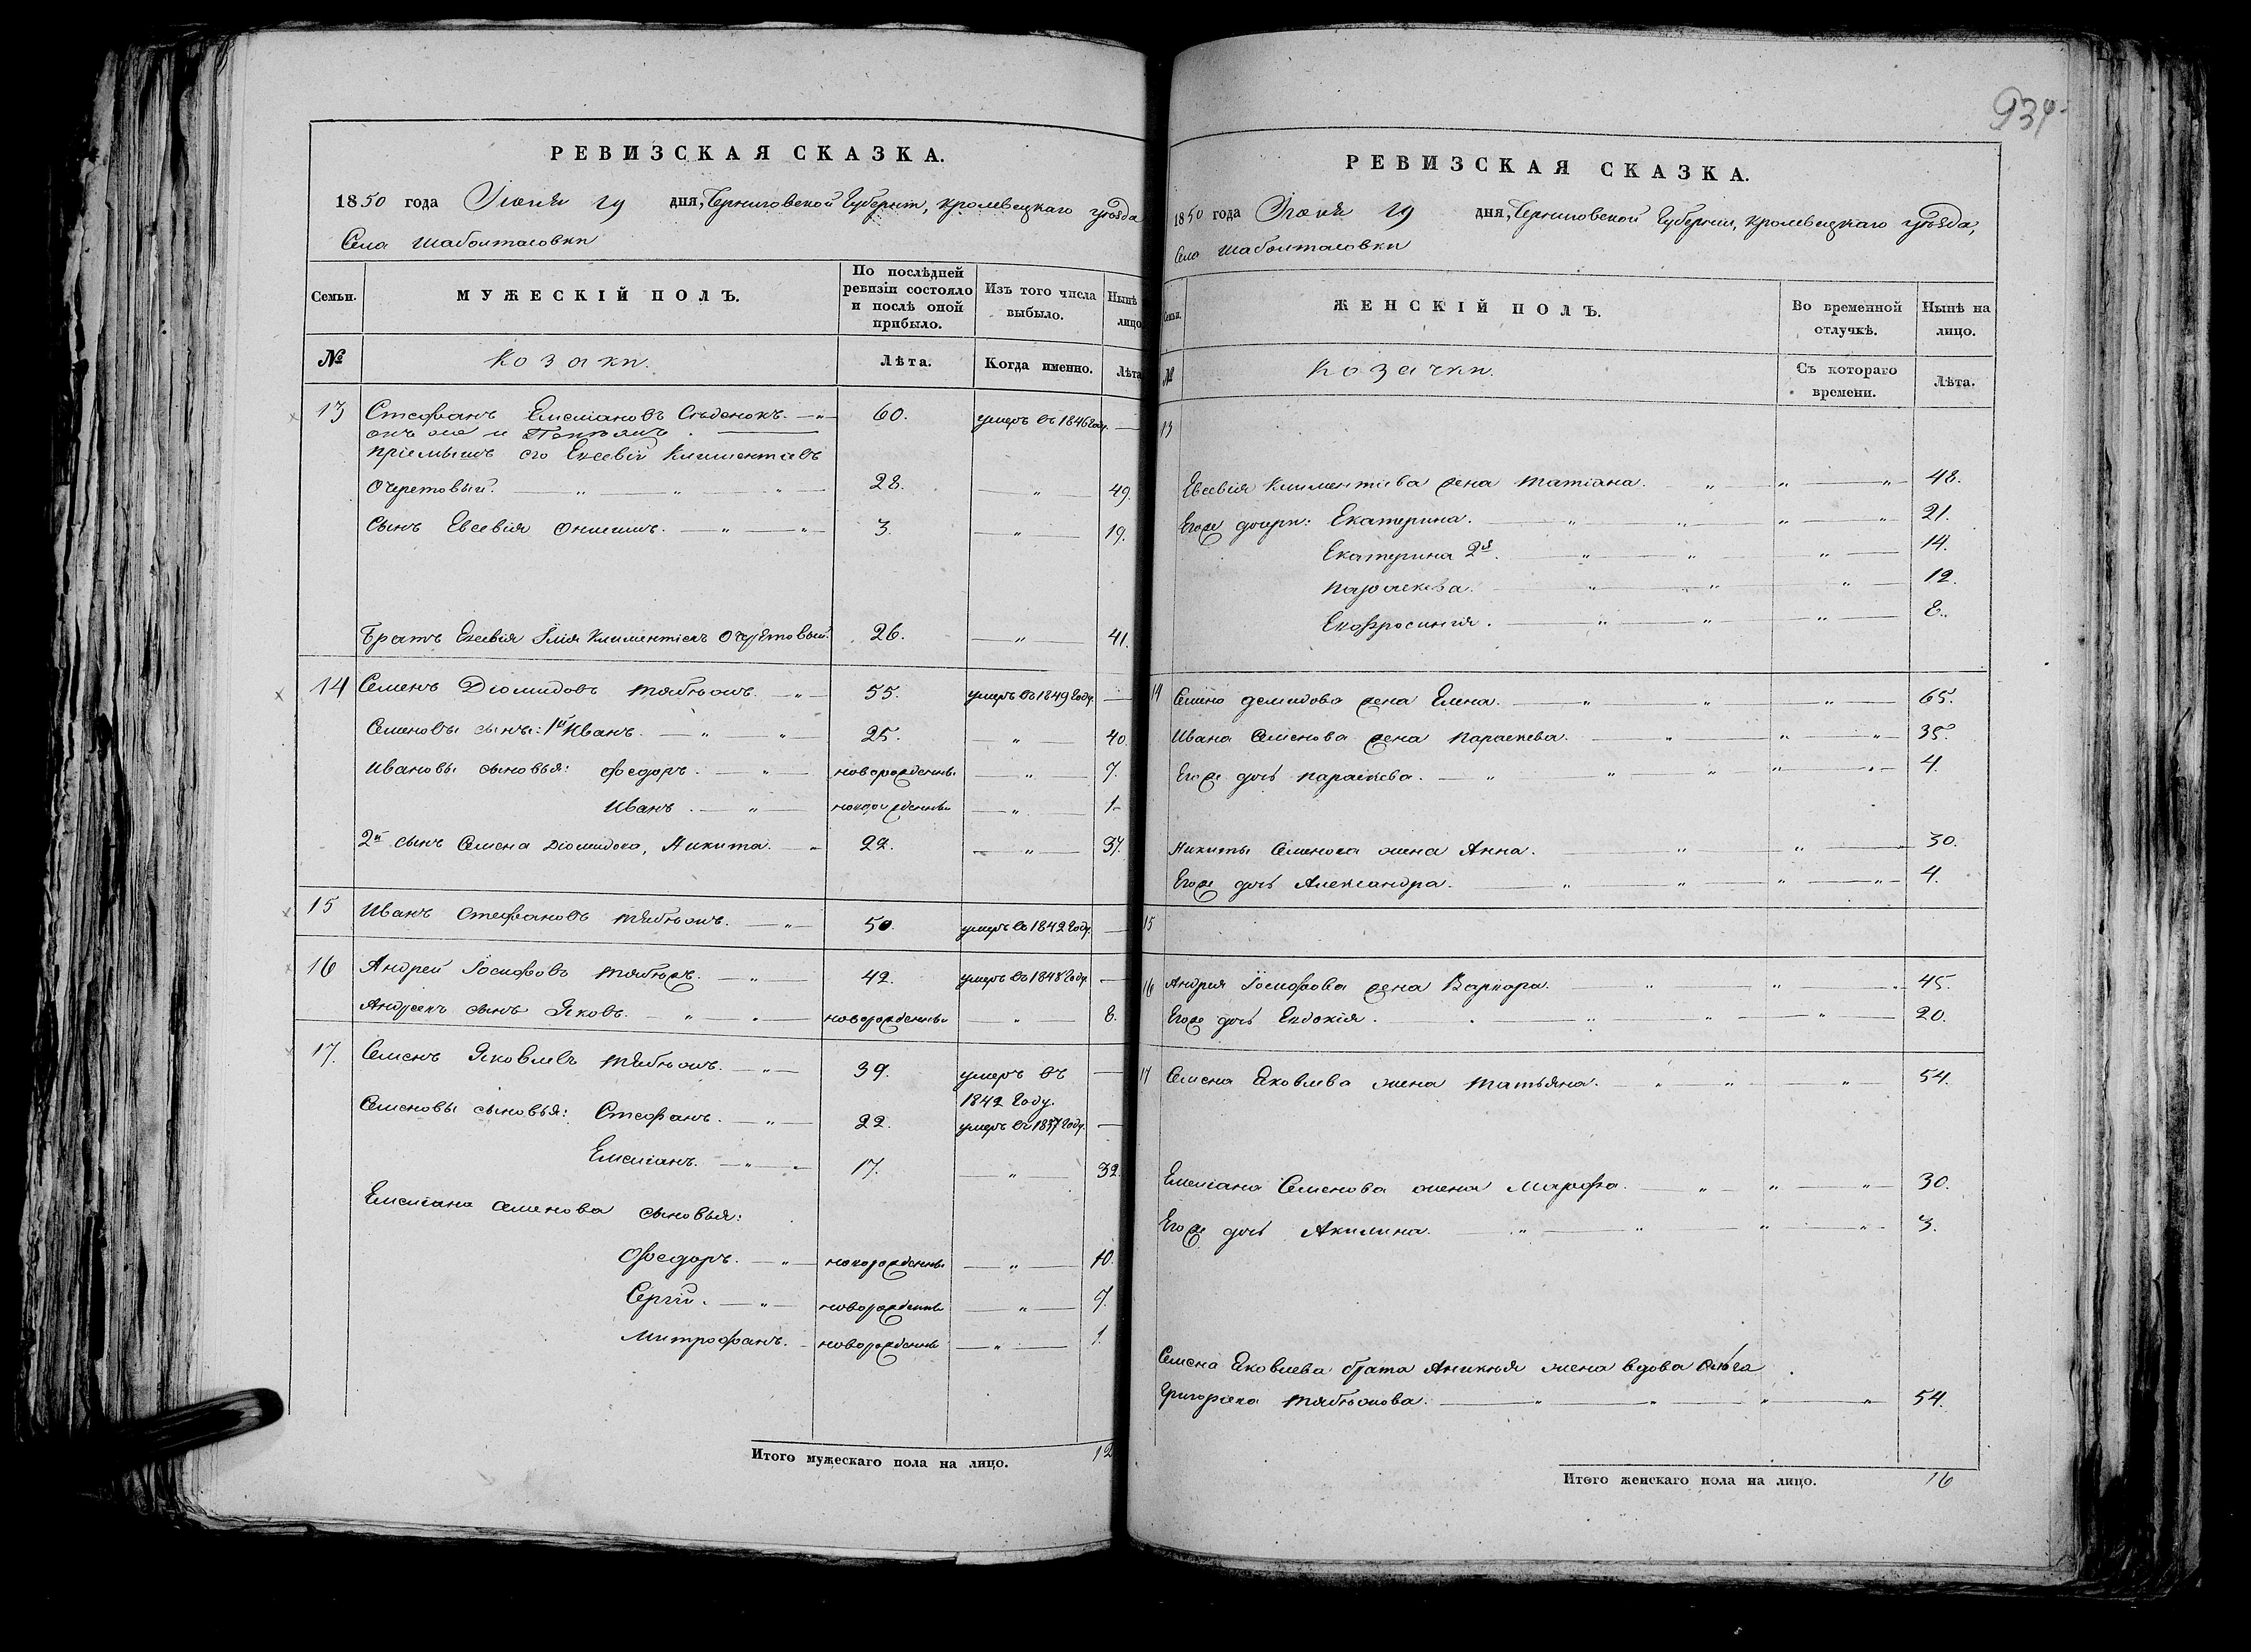 934
РЕВИЗСКАЯ СКАЗКА.
1850 года Іюня 19 дня, Черниговской Губерніи, Кролевецкаго уѣзда
Села Шаболтасовки
Семьи.
МУЖЕСКІЙ ПОЛЪ.
По послѣдней ревизіи состояло и послѣ оной прибыло.
Изъ того числа выбыло.
Нынѣ лицо
№
Козаки.
Лѣта.
Когда именно.
Лѣта
13 Стефанъ Емеліановъ 60. умеръ въ 1846 году.
онъ же и
пріемышъ его Евсевій Климентіевъ
Очеретовый. 28. 49.
Сынъ Евсевія Онисимъ. 3. 19.
Братъ Евсевія Илія Климентіевъ Очеретовый. 26. 41.
14 Семенъ Діомидовъ 55. умеръ въ 1849 году.
Семеновъ сынъ: 1й Иванъ. 25. 40.
Ивановы сыновья: Федоръ. новорожденный 7.
Иванъ. новорожденный 1
2й сынъ Семена Діомидова, Никита. 22. 37.
15 Иванъ Стефановъ 50. умеръ въ 1842 году.
16 Андрей Іосифовъ 42. умеръ въ 1848 году.
Андреевъ сынъ Яковъ. новорожденный 8.
17. Семенъ Яковлевъ 39. умеръ въ
1842 году.
Семеновы сыновья: Стефанъ. 22. умеръ въ 1837 году.
Емеліанъ. 17. 32.
Емеліана Семенова сыновья:
Ѳедоръ. новорожденный 10.
Сергій. новорожденный 7.
Митрофанъ. новорожденный 1.
Итого мужескаго пола на лицо. 12
РЕВИЗСКАЯ СКАЗКА.
1850 года Іюня 19 дня, Черниговской Губерніи, Кролевецкаго уѣзда,
Села Шаболтасовки
Семьи.
ЖЕНСКІЙ ПОЛЪ.
Во временной отлучкѣ.
Нынѣ на лицо.
№
Козачки.
Съ котораго времени.
Лѣта.
13
Евсевія Климентіева жена Татіана. 48.
Его же дочери: Екатерина. 21.
Екатерина 2я. 14.
Параскева. 12.
Евфросинія. 8.
14 Семена Демидова жена Елена. 65.
Ивана Семенова жена Параскева. 35.
Его же дочь Параскева. 4.
Никиты Семенова жена Анна. 30.
Его же дочь Александра. 4.
15
16 Андрея Іосифова жена Варвара. 45.
Его же дочь Евдокія. 20.
17 Семена Яковлева жена Татьяна. 54.
Емеліана Семенова жена Марфа. 30.
Его же дочь Акилина. 3.
Семена Яковлева брата жена вдова
54.
Итого женскаго пола на лицо. 16